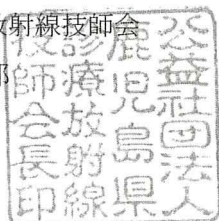 放射線技師会
公益社団法人
鹿児島県
診療放射線
技師会長印